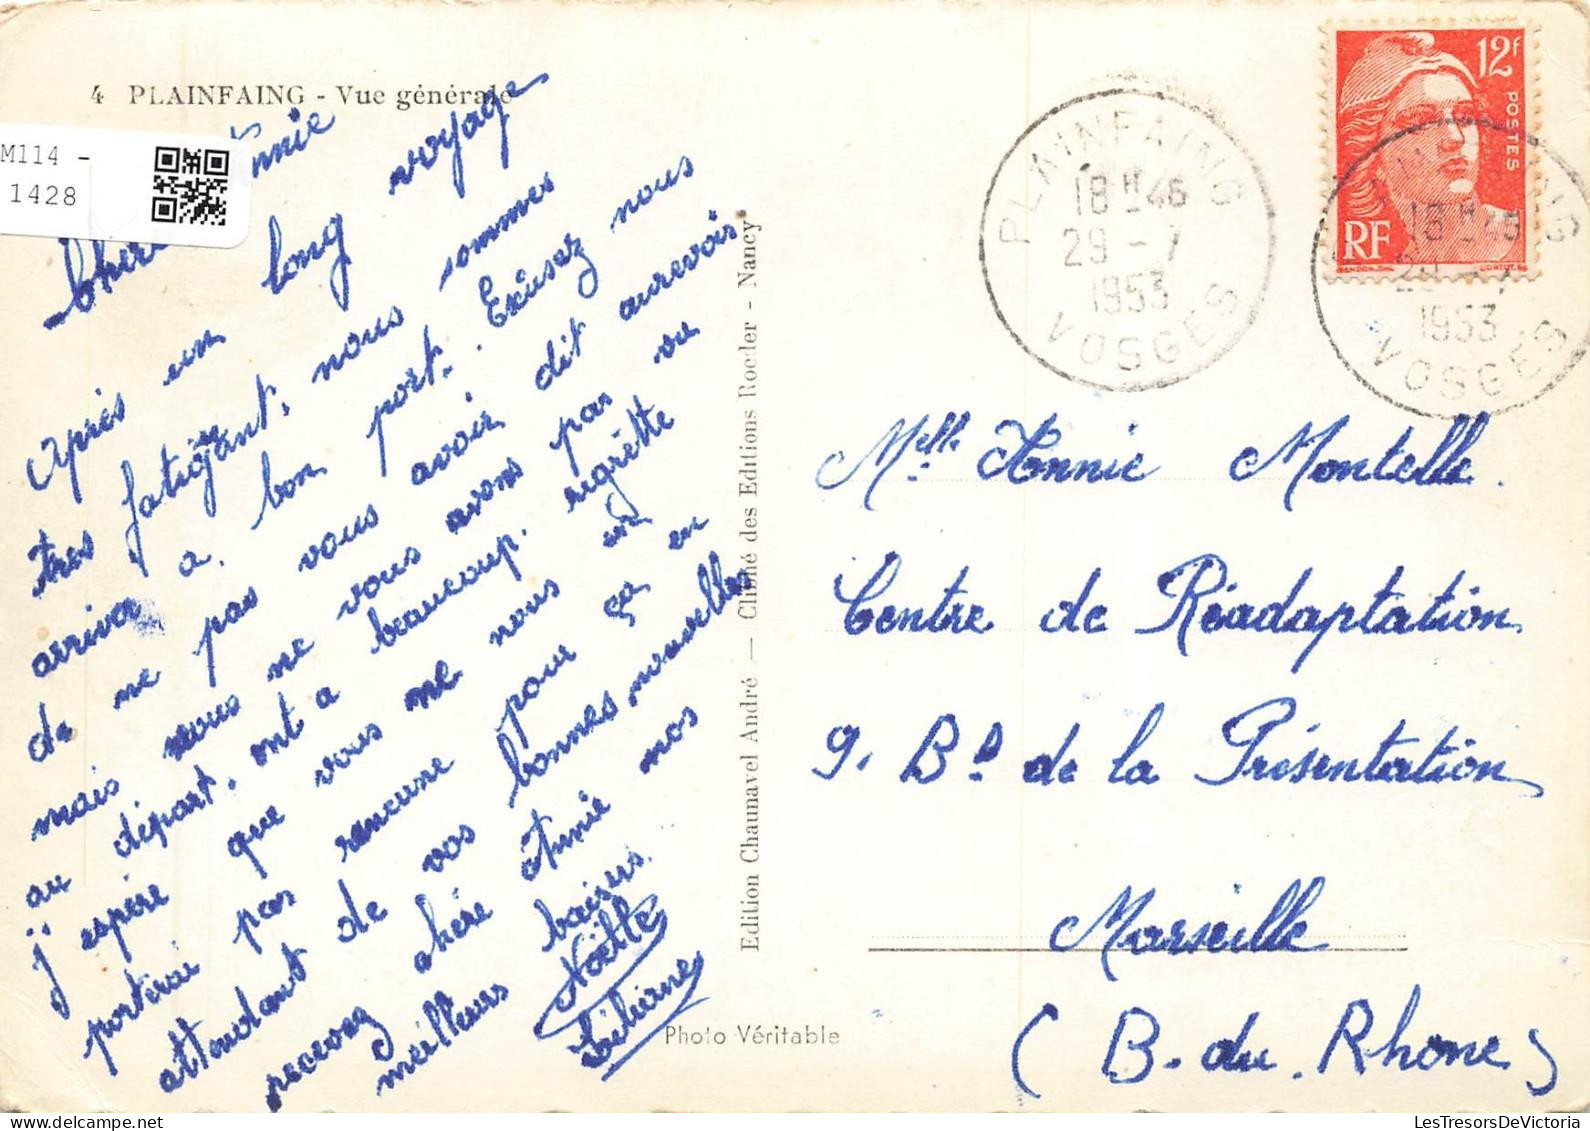 4 PLAINFAING - Vue générale
M114 -
1428
Après un long voyage
très fatigant, nous sommes
arriver a bon port. Excusez nous
de ne pas vous avoir dit aurevoir
mais nous ne vous avons pas vu
au départ, ont a beaucoup regrètte
j'espère que vous me nous en
porterai pas rencune pour ça en
attendant de vos bonnes nouvelles
recevez chère Annie nos
meilleurs baisers.
Noëlle
Edition Chaunavel André — Cliché des Editions Rocler - Nancy
Photo Véritable
12f
POSTES
RF
PLAINFAING
18H46
29-7
1953
VOSGES
PLAINFAING
18H46
29-7
1953
VOSGES
Melle Annie Montelle.
Centre de Réadaptation
9. Bd de la Présentation
Marseille
(B. du. Rhone)
LesTresorsDeVictoria.com